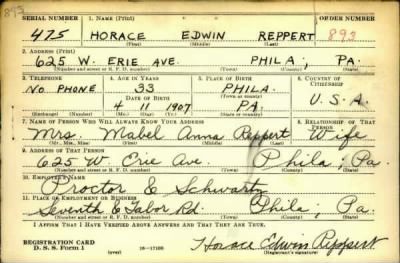 893
SERIAL NUMBER 1. NAME (Print) ORDER NUMBER
475 HORACE EDWIN REPPERT 893
(First) (Middle) (Last)
2. ADDRESS (Print)
625 W. ERIE AVE. PHILA; PA.
(Number and street or R. F. D. number) (Town) (County) (State)
3. TELEPHONE 4. AGE IN YEARS 5. PLACE OF BIRTH 6. COUNTRY OF CITIZENSHIP
NO PHONE 33 PHILA.
DATE OF BIRTH (Town or county)
4 11 1907 PA. U.S.A.
(Exchange) (Number) (Mo.) (Day) (Yr.) (State or country)
7. NAME OF PERSON WHO WILL ALWAYS KNOW YOUR ADDRESS 8. RELATIONSHIP OF THAT PERSON
Mrs. Mabel Anna Reppert Wife
(Mr., Mrs., Miss) (First) (Middle) (Last)
9. ADDRESS OF THAT PERSON
625 W. Erie Ave. Phila; Pa.
(Number and street or R. F. D. number) (Town) (County) (State)
10. EMPLOYER'S NAME
Proctor & Schwartz
11. PLACE OF EMPLOYMENT OR BUSINESS
Seventh & Tabor Rd. Phila; Pa.
(Number and street or R. F. D. number) (Town) (County) (State)
I AFFIRM THAT I HAVE VERIFIED ABOVE ANSWERS AND THAT THEY ARE TRUE.
REGISTRATION CARD
D. S. S. Form 1 16-17105 Horace Edwin Reppert
(over) (Registrant's signature)